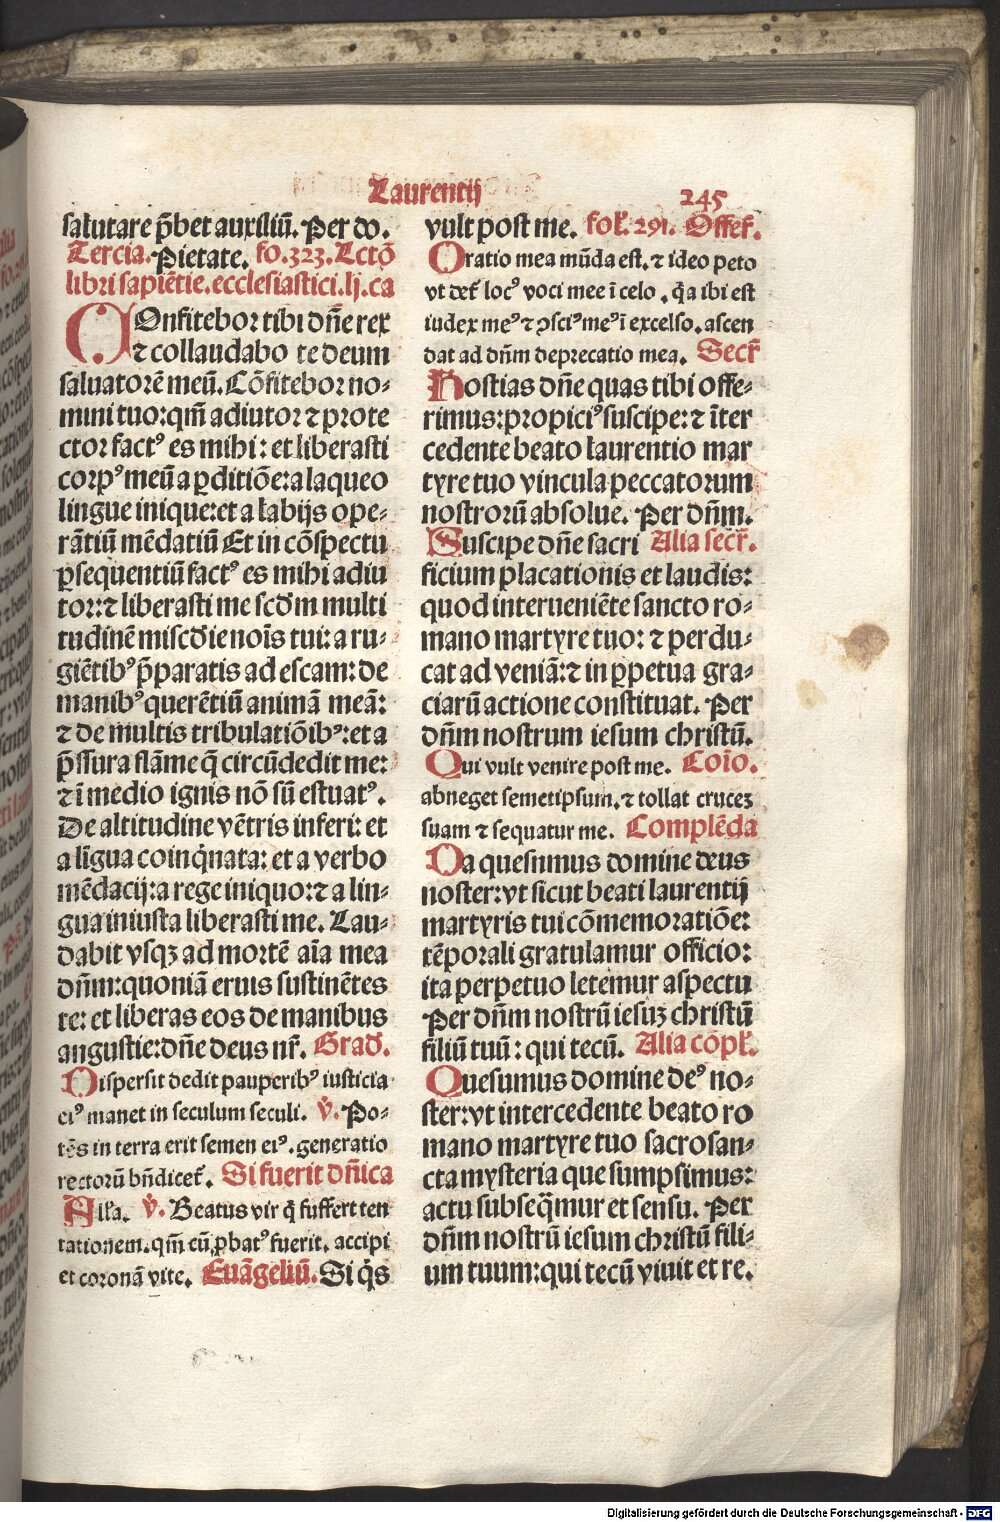 Laurentij 245
salutare p̄bet auxiliū. Per do.
Tercia. Pietate. fo.323. Lectō
libri sapiētie. ecclesiastici. lj. ca
COnfitebor tibi dn̄e rex
⁊ collaudabo te deum
saluatorē meū. Cōfitebor no⸗
mini tuo: qm̄ adiutor ⁊ prote
ctor factꝰ es mihi: et liberasti
corpꝰ meū a ꝑditiōe: a laqueo
lingue inique: et a labijs ope⸗
rātiū mēdatiū Et in cōspectu
ꝑsequentiū factꝰ es mihi adiu
tor: ⁊ liberasti me scd̄m multi
tudinē miscd̄ie noīs tui: a ru⸗
giētibꝰ p̄paratis ad escam: de
manibꝰ querētiū animā meā:
⁊ de multis tribulatiōibꝰ: et a
p̄ssura flāme q̄ circūdedit me:
⁊ ī medio ignis nō sū estuatꝰ.
De altitudine vētris inferi: et
a līgua coinq̇nata: et a verbo
mēdacij: a rege iniquo: ⁊ a lin⸗
gua iniusta liberasti me. Lau⸗
dabit vsqꝫ ad mortē aīa mea
dn̄m: quoniā eruis sustinētes
te: et liberas eos de manibus
angustie: dn̄e deus nr̄. Grad̄.
Dispersit dedit pauperibꝰ iusticia
eiꝰ manet in seculum seculi. v̇. Po⸗
tēs in terra erit semen eiꝰ. generatio
rectorū bn̄dicet᷑. Si fuerit dn̄ica
All'a. v̇. Beatus vir q̇ suffert ten
tationem. qm̄ cū ꝓbatꝰ fuerit. accipi
et coronā vite. Euāgeliū. Si q̇s
vult post me. fol'. 291. Offer̄.
Oratio mea mūda est. ⁊ ideo peto
vt det᷑ locꝰ voci mee ī celo. q̇a ibi est
iudex meꝰ ⁊ ꝯsciꝰ meꝰ ī excelso. ascen
dat ad dn̄m deprecatio mea. Secr̄
Hostias dn̄e quas tibi offe⸗
rimus: propiciꝰ suscipe: ⁊ īter
cedente beato laurentio mar
tyre tuo vincula peccatorum
nostrorū absolue. Per dn̄m.
Suscipe dn̄e sacri Alia secr̄.
ficium placationis et laudis:
quod interueniēte sancto ro⸗
mano martyre tuo: ⁊ perdu⸗
cat ad veniā: ⁊ in ꝑpetua gra⸗
ciarū actione constituat. Per
dn̄m nostrum iesum christū.
Qui vult venire post me. Coīo.
abneget semetipsum. ⁊ tollat crucez
suam ⁊ sequatur me. Complēda
Da quesumus domine deus
noster: vt sicut beati laurentij
martyris tui cōmemoratiōe:
tēporali gratulamur officio:
ita perpetuo letemur aspectu
Per dn̄m nostrū iesuꝫ christū
filiū tuū: qui tecū. Alia cōpl'.
Quesumus domine deꝰ no⸗
ster: vt intercedente beato ro
mano martyre tuo sacrosan⸗
cta mysteria que sumpsimus:
actu subseq̄mur et sensu. Per
dn̄m nostrū iesum christū fili⸗
um tuum: qui tecū viuit et re.
Digitalisierung gefördert durch die Deutsche Forschungsgemeinschaft - DFG